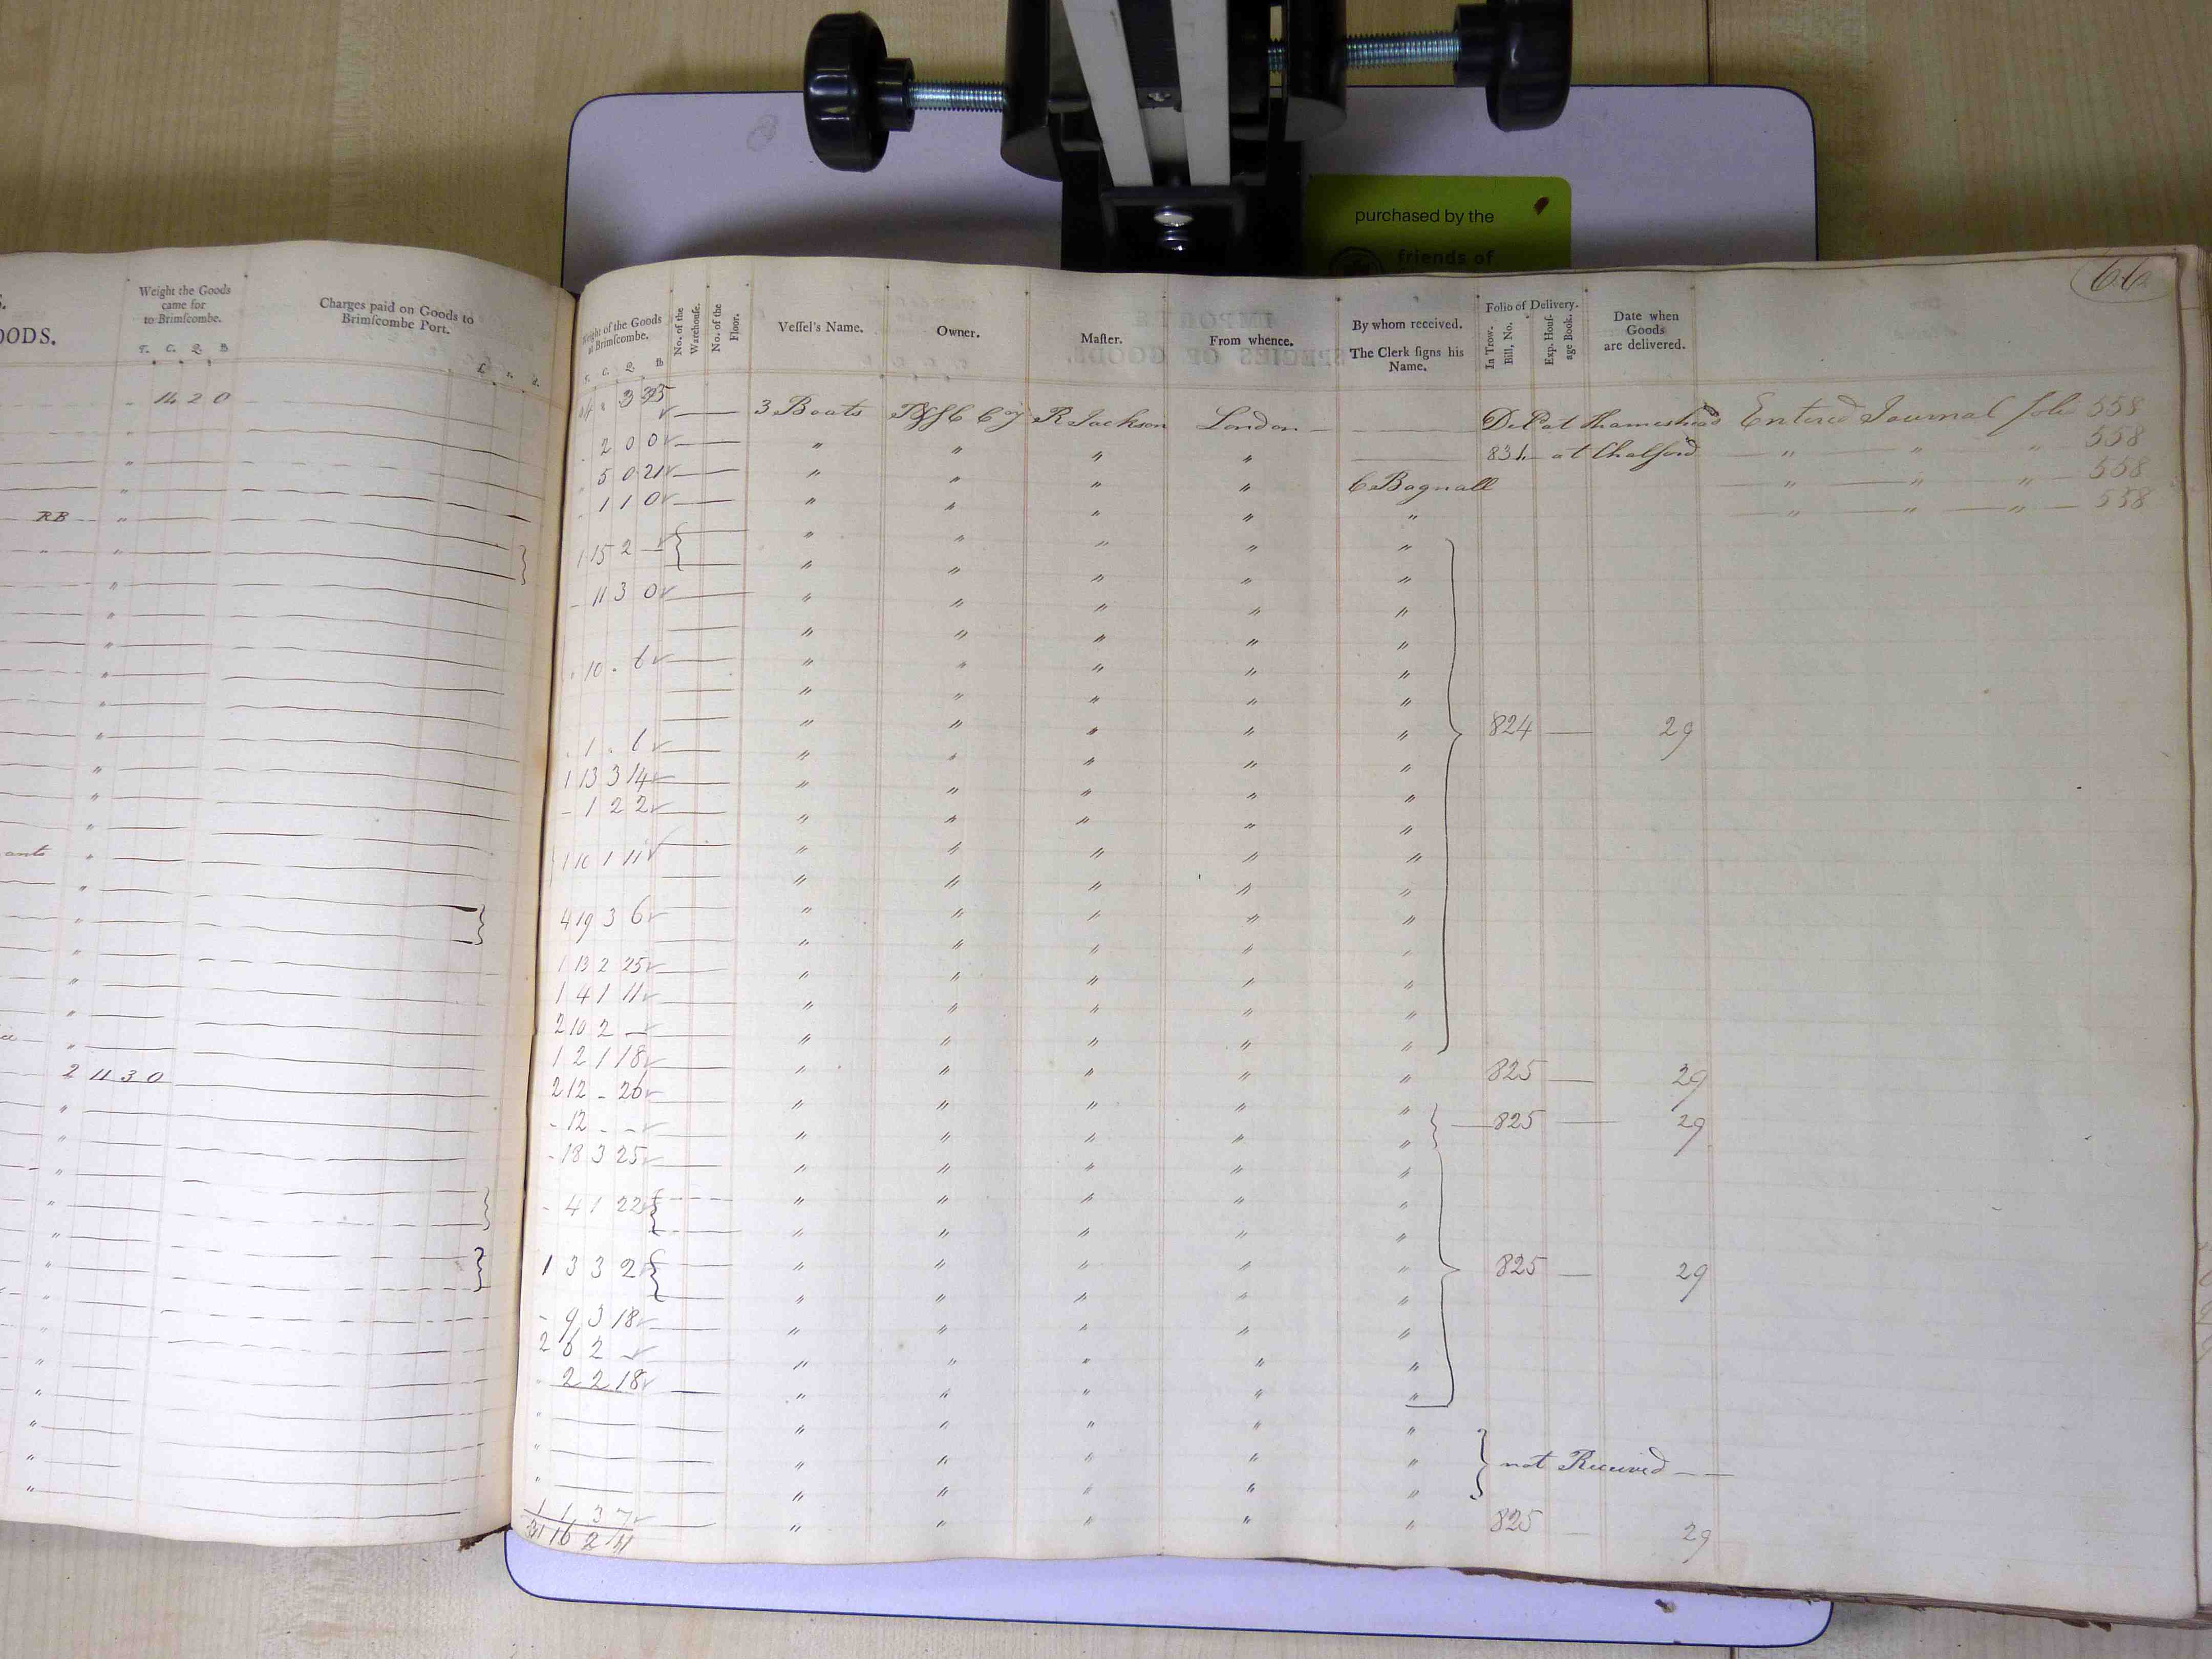 purchased by the
friends of
66
S.
OODS.
Weight the Goods
came for
to Brimſcombe.
T. C. Q. lb
Charges paid on Goods to
Brimſcombe Port.
£. s. d.
Weight of the Goods
at Brimſcombe.
T. C. Q. lb
No. of the
Warehouse.
No. of the
Floor.
Veſſel's Name.
Owner.
Maſter.
From whence.
By whom received.
The Clerk ſigns his
Name.
Folio of Delivery.
In Trow.
Bill, No.
Exp. Houſ-
age Book.
Date when
Goods
are delivered.
- 14 2 0
RB
ants
2 11 3 0
3 Boats R Jackson London
at Thameshead Entered Journal folio 558
. 2 0 0 " " " " 831 at Chalford " " " 558
. 5 0 21 " " " " C Bagnall " " " 558
. 1 1 0 " " " " " " " " 558
1 15 2 — " " " " "
" " " " "
- 11 3 0 " " " " "
" " " " "
. 10 . 6 " " " " "
" " " " "
" " " " " 824 — 29
. 1 . 6 " " " " "
1 13 3 14 " " " " "
- 1 2 2 " " " " "
1 10 1 11 " " " " "
" " " " "
4 19 3 6 " " " " "
" " " " "
1 13 2 25 " " " " "
1 4 1 11 " " " " "
2 10 2 — " " " " "
1 2 1 18 " " " " " 825 — 29
2 12 - 26 " " " " "
- 12 - - " " " " " 825 — 29
- 18 3 25 " " " " "
- 4 1 22 " " " " "
" " " " "
1 3 3 2 " " " " " 825 — 29
" " " " "
- 9 3 18 " " " " "
2 6 2 — " " " " "
. 2 2 18 " " " " "
" " " " " "
" " " " " " not Received
" " " " " "
1 1 3 7 " " " " " 825 — 29
16 2